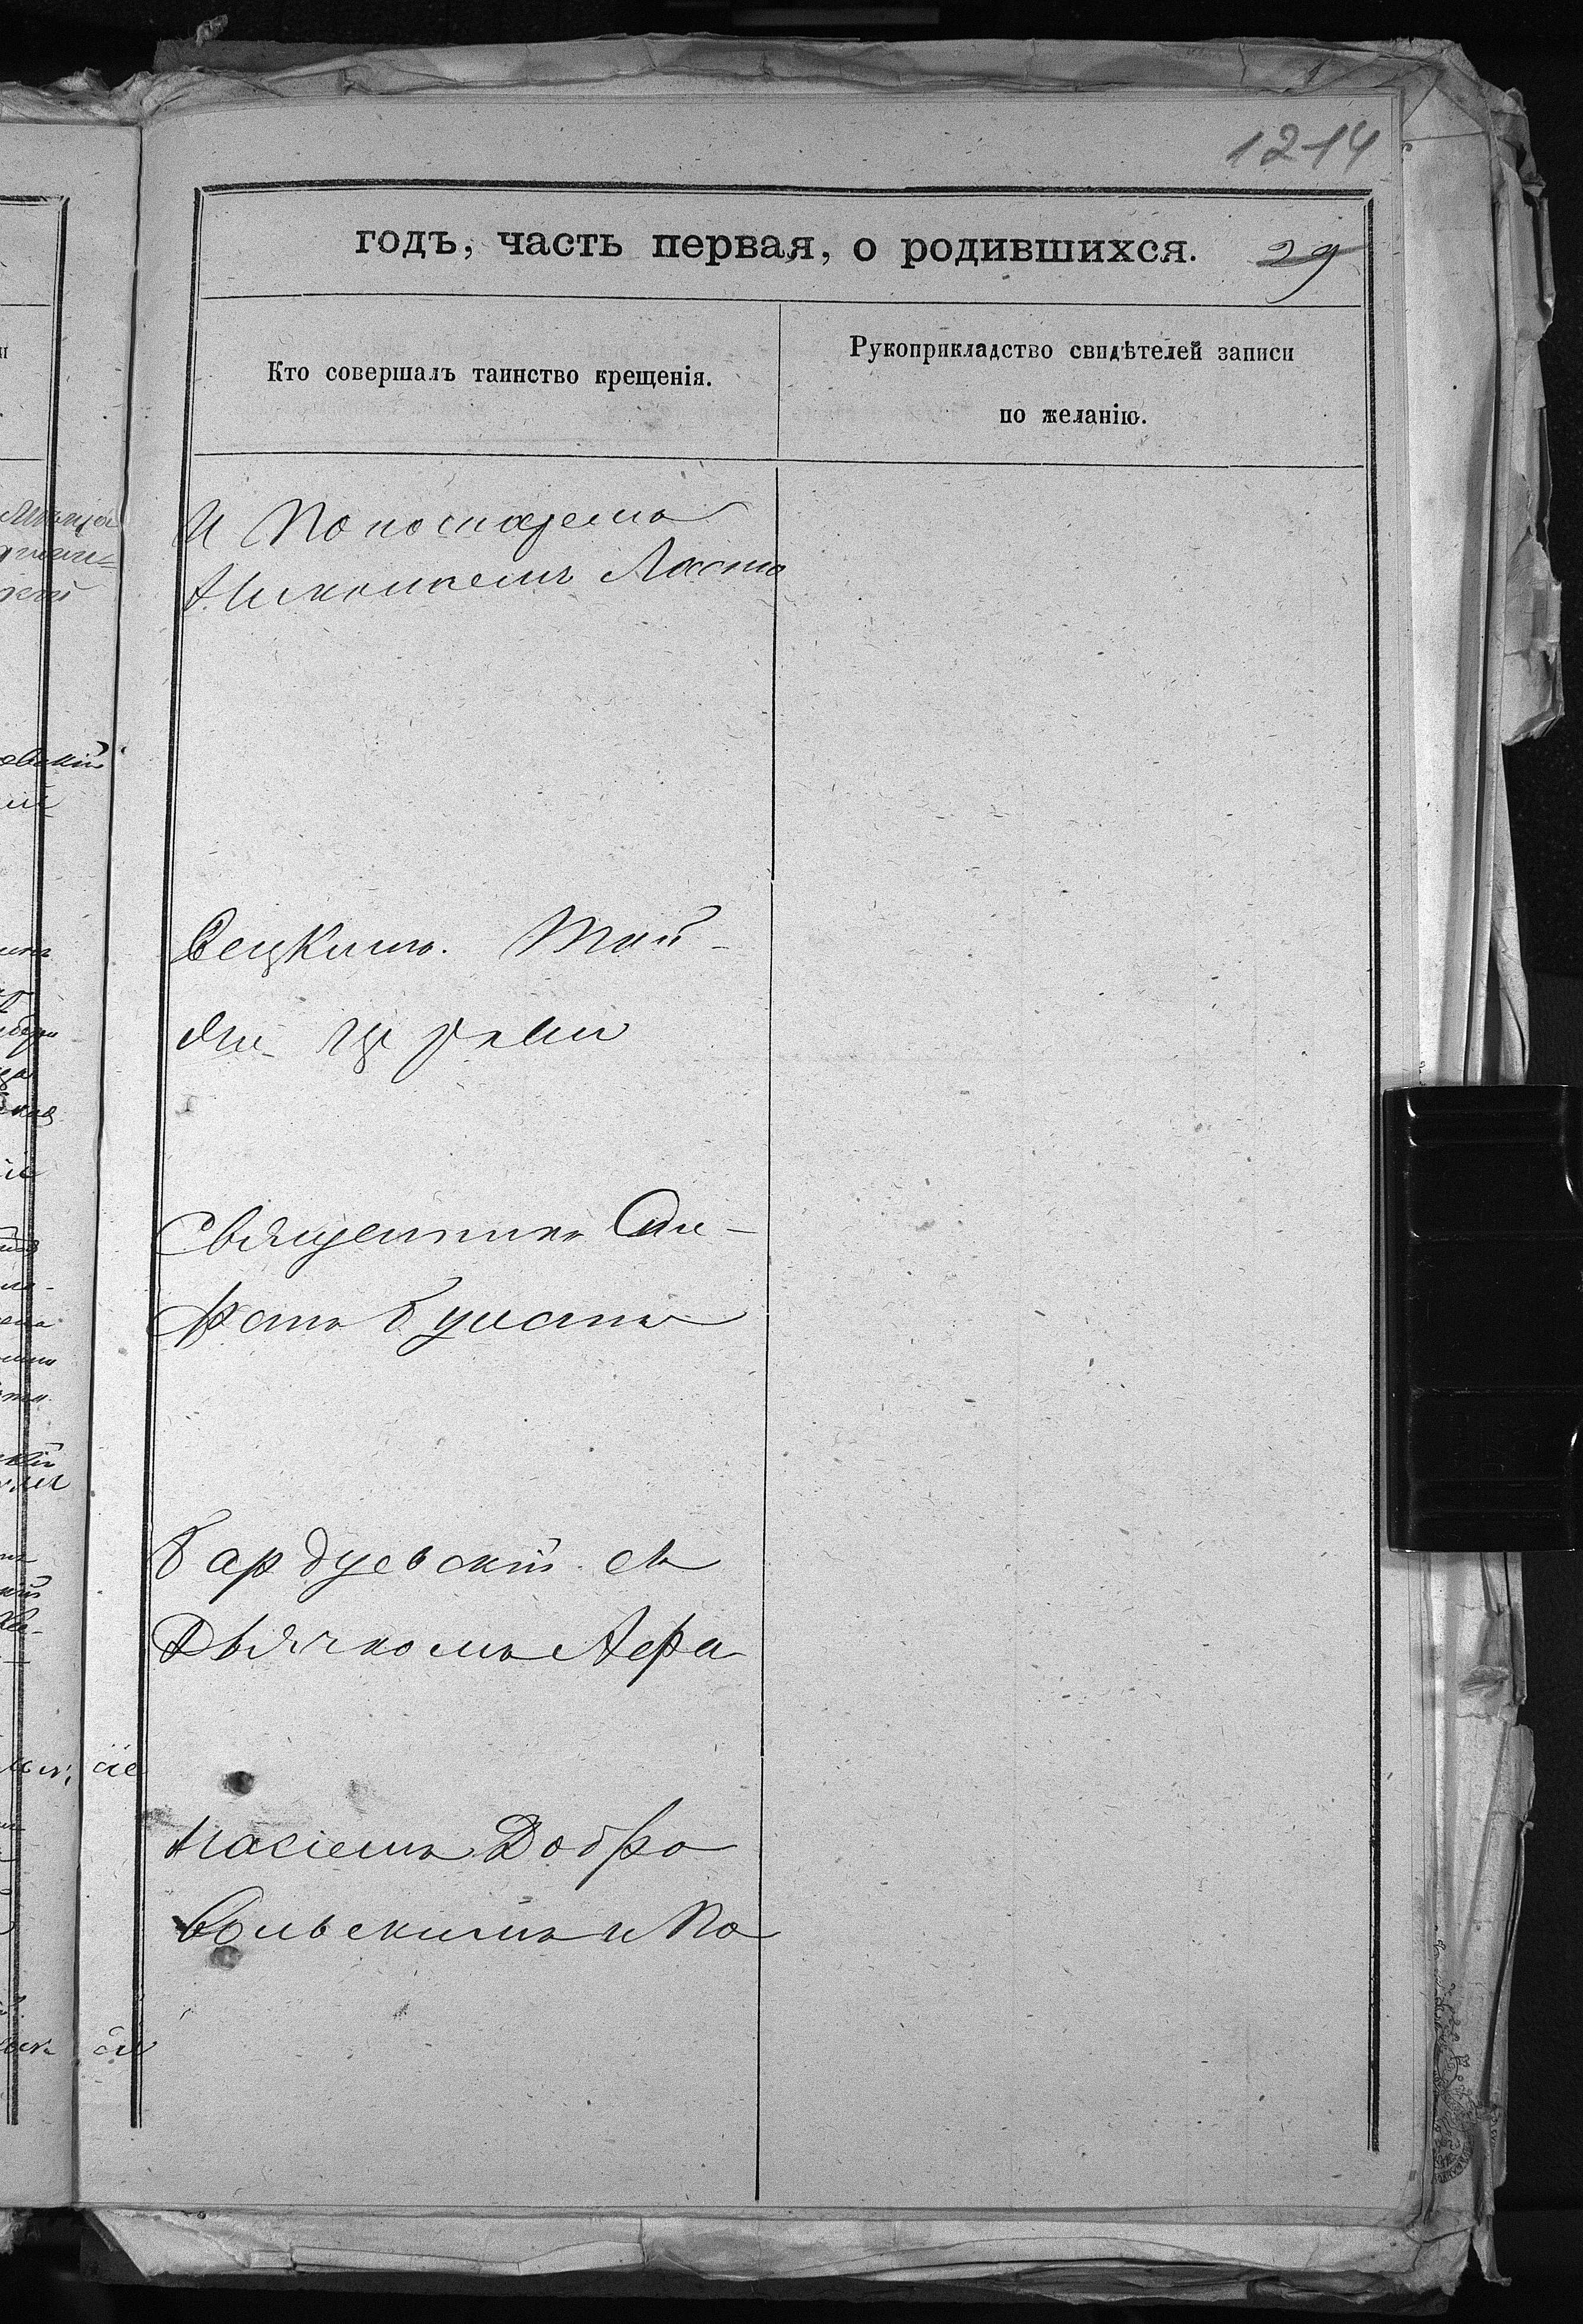 1214
годъ, часть первая, о родившихся. 29
Кто совершалъ таинство крещенія.
Рукоприкладство свидѣтелей записи
по желанію.
И Пономаремъ
Николаемъ Ласто
вецкимъ. Той
же церкви
Священникъ Они-
Бардуевскій съ
Дьячкомъ Афа
насіемъ Добро
вольскимъ и По